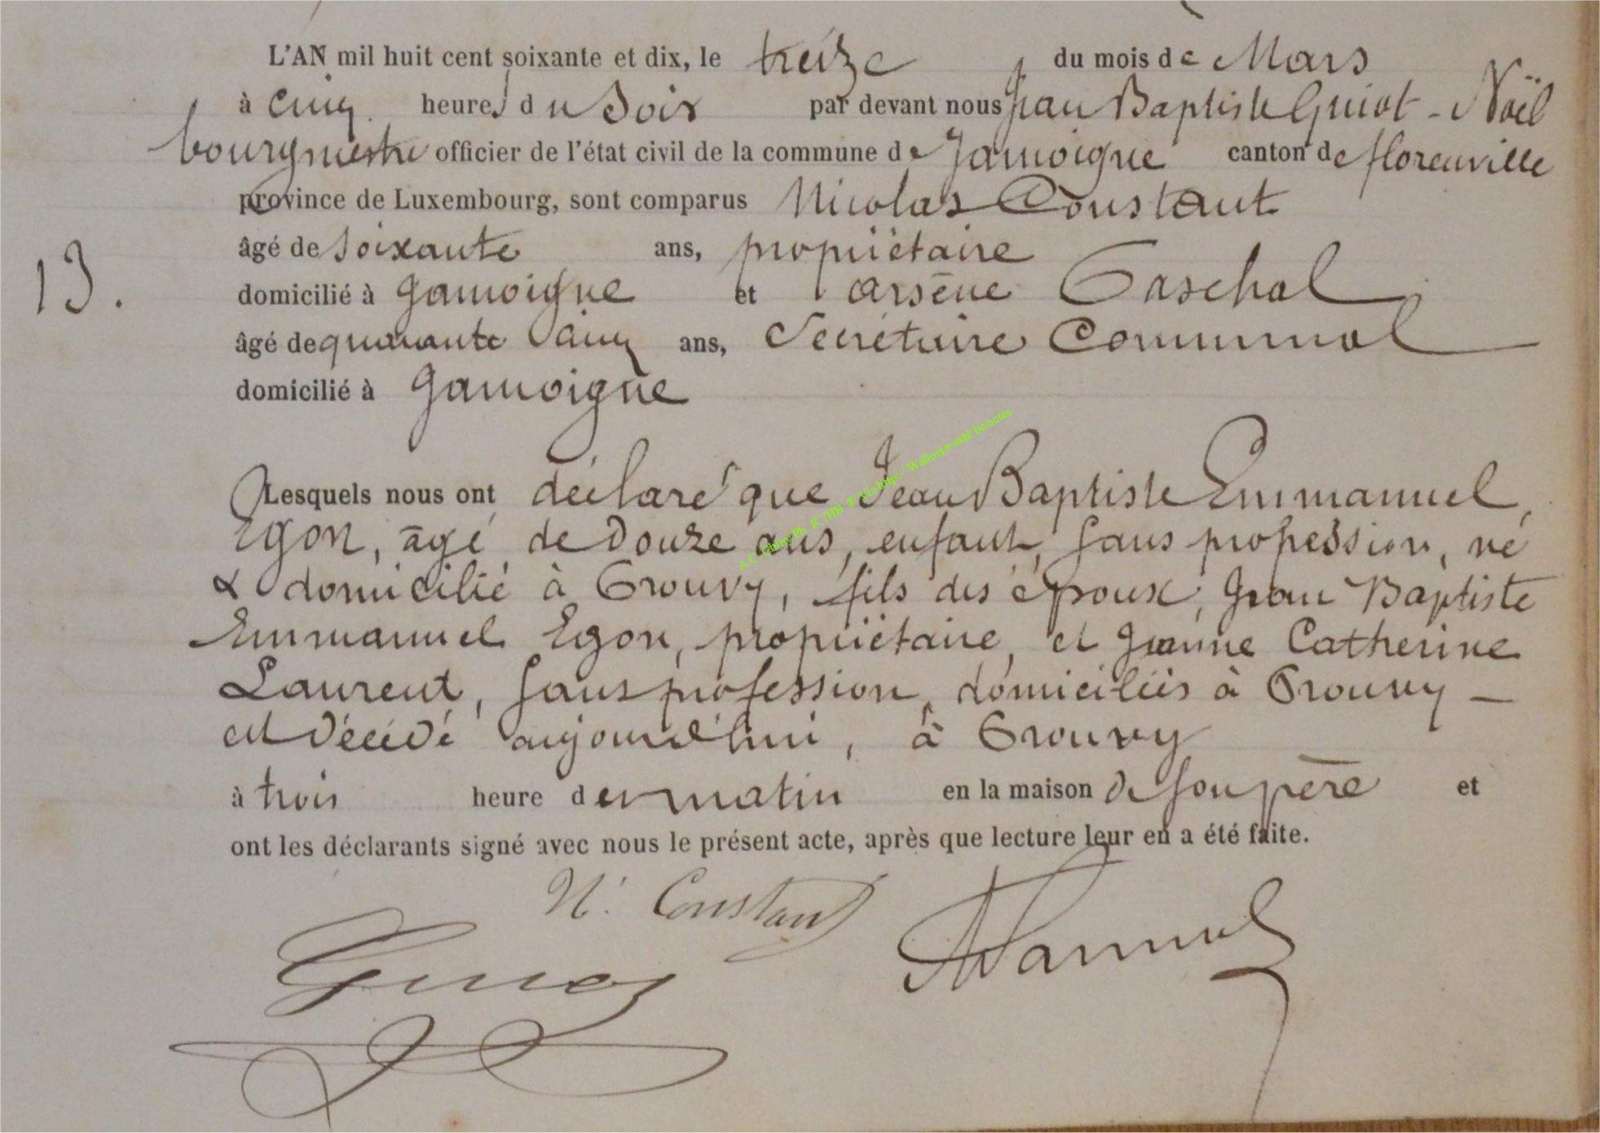 L'AN mil huit cent soixante et dix, le treize du mois de Mars
à cinq heures du Soir par devant nous Jean Baptiste Guiot - Noël
bourgmestre officier de l'état civil de la commune de Jamoigne canton de florenville
province de Luxembourg, sont comparus Nicolas Constant
âgé de soixante ans, propriétaire
13.
domicilié à Jamoigne et arsène Paschal
âgé de quarante cinq ans, Secrétaire Communal
domicilié à Jamoigne
Lesquels nous ont déclaré que Jean Baptiste Emmanuel
Egon, âgé de Douze ans, enfant, sans profession, né
& domicilié à Prouvy, fils des époux, Jean Baptiste
Emmanuel Egon, propriétaire, et Jeanne Catherine
Laurent, sans profession, domiciliés à Prouvy -
est Décédé aujourd'hui, à Prouvy
à trois heure du matin en la maison de son père et
ont les déclarants signé avec nous le présent acte, après que lecture leur en a été faite.
N. Constant